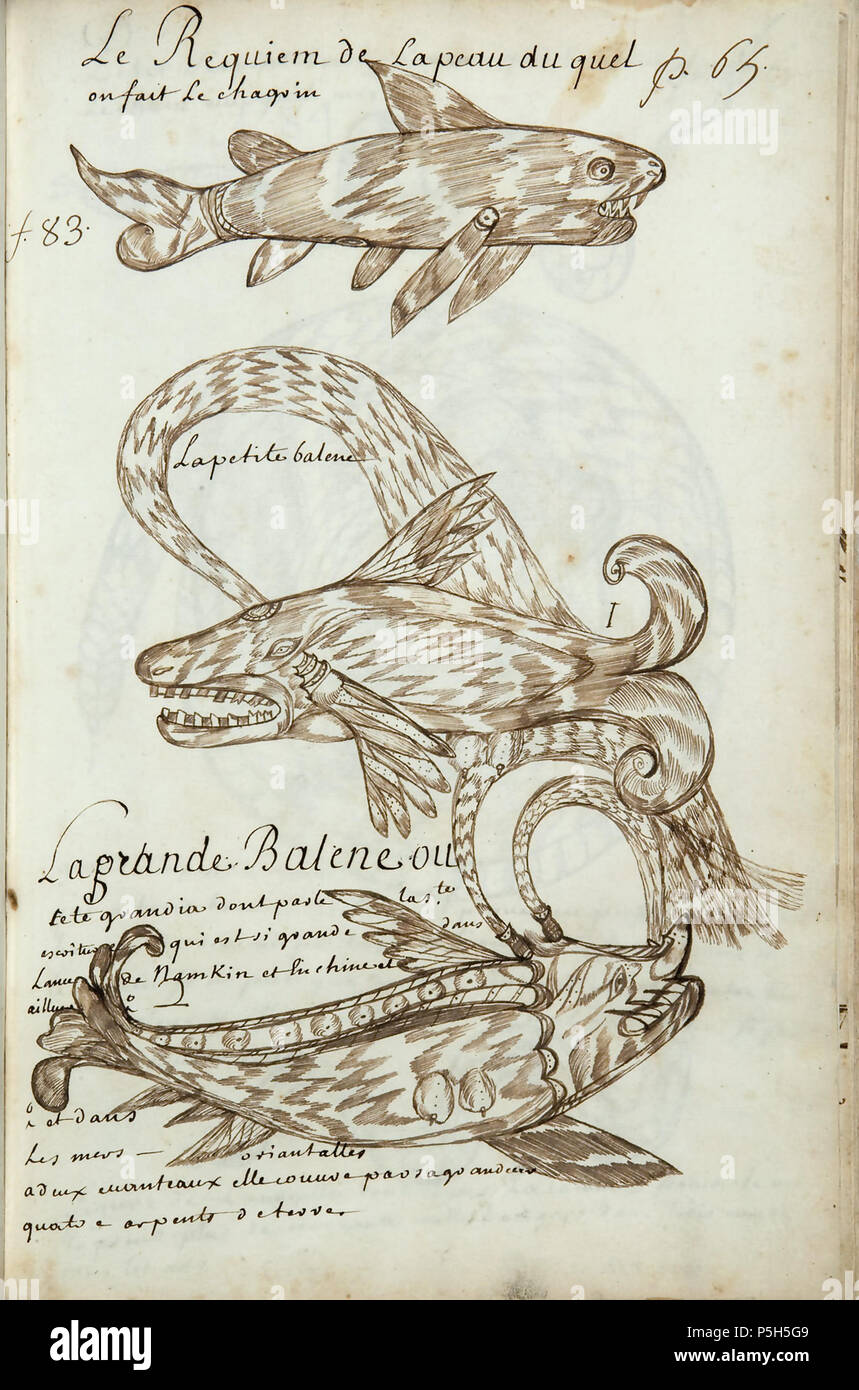 Le Requiem de Lapeau du quel
p. 65.
on fait Le chagrin
f. 83.
Lapetite balene
I
Lagrande Balene ou
tete grandia dont parle las.te
escriture qui est si grande dans
de Namkin et
ailleurs
et dans
Les mers — oriantalles
adeux euanteaux elle couure par sa grandeur
quatre arpents deterre
alamy
Image ID: P5H5G9
www.alamy.com